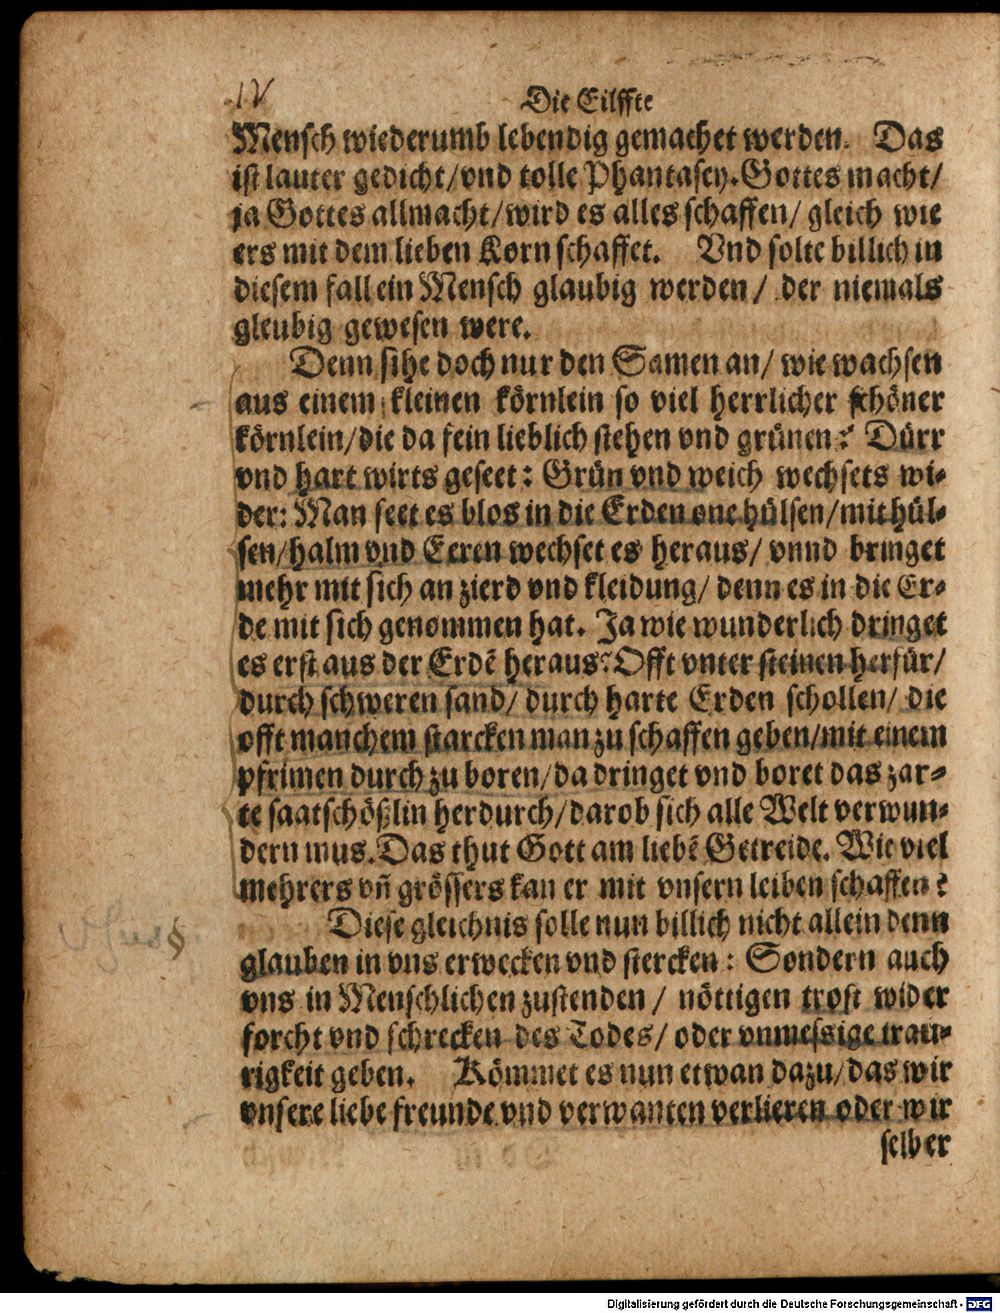 IV
Die Eilffte
Mensch wiederumb lebendig gemachet werden. Das
ist lauter gedicht/vnd tolle Phantasey. Gottes macht/
ja Gottes allmacht/wird es alles schaffen/ gleich wie
ers mit dem lieben Korn schaffet. Vnd solte billich in
diesem fall ein Mensch glaubig werden/ der niemals
gleubig gewesen were.
Denn sihe doch nur den Samen an/ wie wachsen
aus einem kleinen körnlein so viel herrlicher schöner
körnlein/die da fein lieblich stehen vnd grünen? Dürr
vnd hart wirts geseet: Grün vnd weich wechsets wi-
der: Man seet es blos in die Erden one hülsen/mit hül-
sen/halm vnd Eeren wechset es heraus/ vnnd bringet
mehr mit sich an zierd vnd kleidung/ denn es in die Er-
de mit sich genommen hat. Ja wie wunderlich dringet
es erst aus der Erdẽ heraus? Offt vnter steinen herfür/
durch schweren sand/ durch harte Erden schollen/ die
offt manchem starcken man zu schaffen geben/mit einem
pfrimen durch zu boren/da dringet vnd boret das zar-
te saatschößlin herdurch/darob sich alle Welt verwun-
dern mus. Das thut Gott am liebẽ Getreide. Wie viel
mehrers vñ grössers kan er mit vnsern leiben schaffen?
Diese gleichnis solle nun billich nicht allein denn
glauben in vns erwecken vnd stercken: Sondern auch
vns in Menschlichen zustenden/ nöttigen trost wider
forcht vnd schrecken des Todes/ oder vnmessige trau-
rigkeit geben. Kömmet es nun etwan dazu/das wir
vnsere liebe freunde vnd verwanten verlieren oder wir
selber
Digitalisierung gefördert durch die Deutsche Forschungsgemeinschaft - DFG